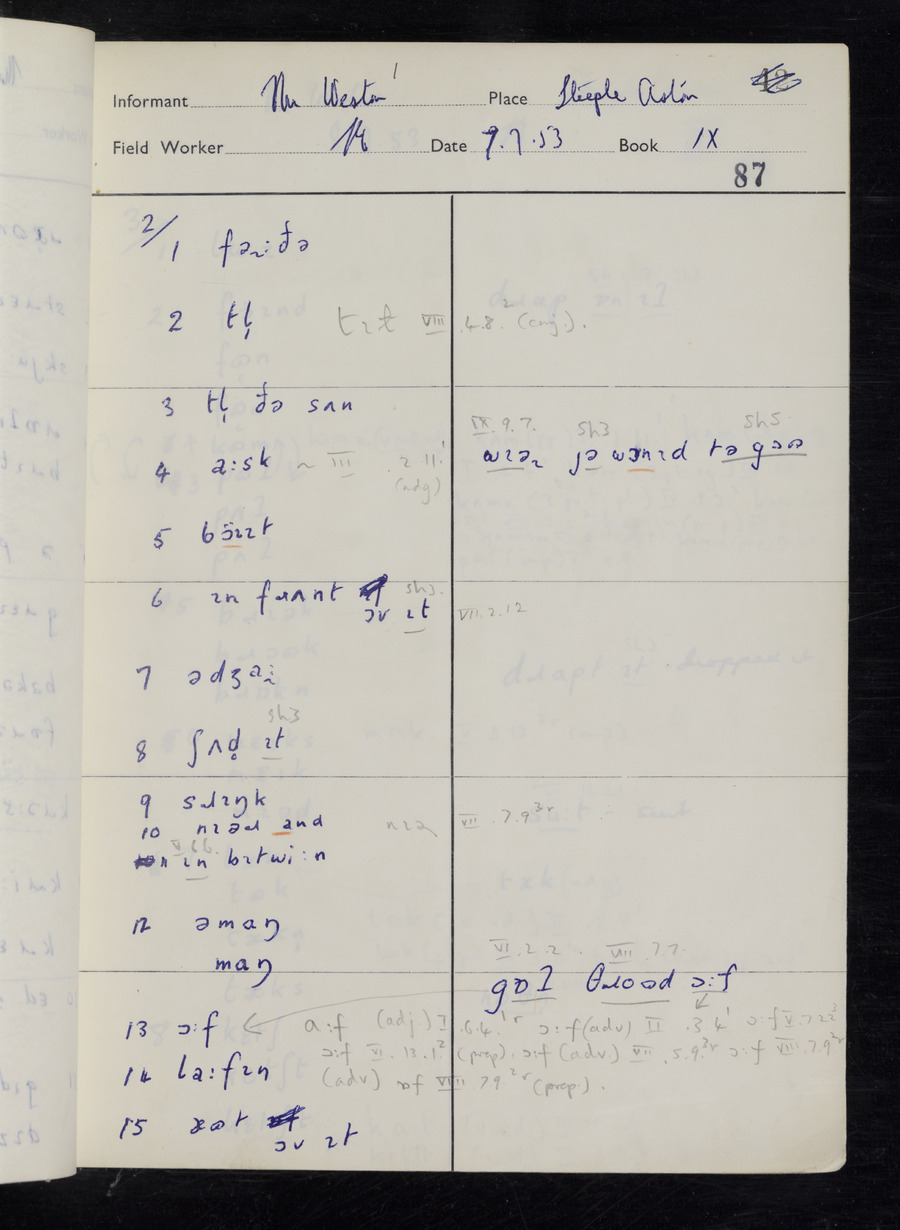 Informant Mr Weston Place Steeple Aston
Field Worker Date 7.7.53 Book IX
87
2/
1 fəɹːðə
2 tl̩ tɪt VIII .4.8.² (conj.).
3 tl̩ ðə sʌn
IX.9.7. sh3 sh5
4 aːsk ~ III .2.11.¹ wɪəɹ jə wɒnɪd tə gəʊ
5 bɔ̈ɪɪt
6 ɪn fɹʌnt sh3.
ɔv ɪt VII.2.12
7 ədʒaː
sh3
8 ʃʌd̥ ɪt
9 sɹɪŋk
10 nɪəɹ and nɪə VII .7.9³ʳ
V 6.6.
11 ɪn bɪtwiːn
12 əmaŋ
VI.2.2. VIII 7.7.
maŋ
gɒl θɹʊʊd ɔːf
13 ɔːf aːf (adj.) I .6.4.¹ʳ ɔːf (adv) II .3 4¹ ɔːf V.7.22³
ɔːf VI .13.1.² (prep). ɔːf (adv.) VII .5.9³ʳ ɔːf VIII.7.9²ʳ
14 laːfɪn (adv) ɒf VIII 7.9²ʳ (prep.).
15 æʊt
ɔv ɪt